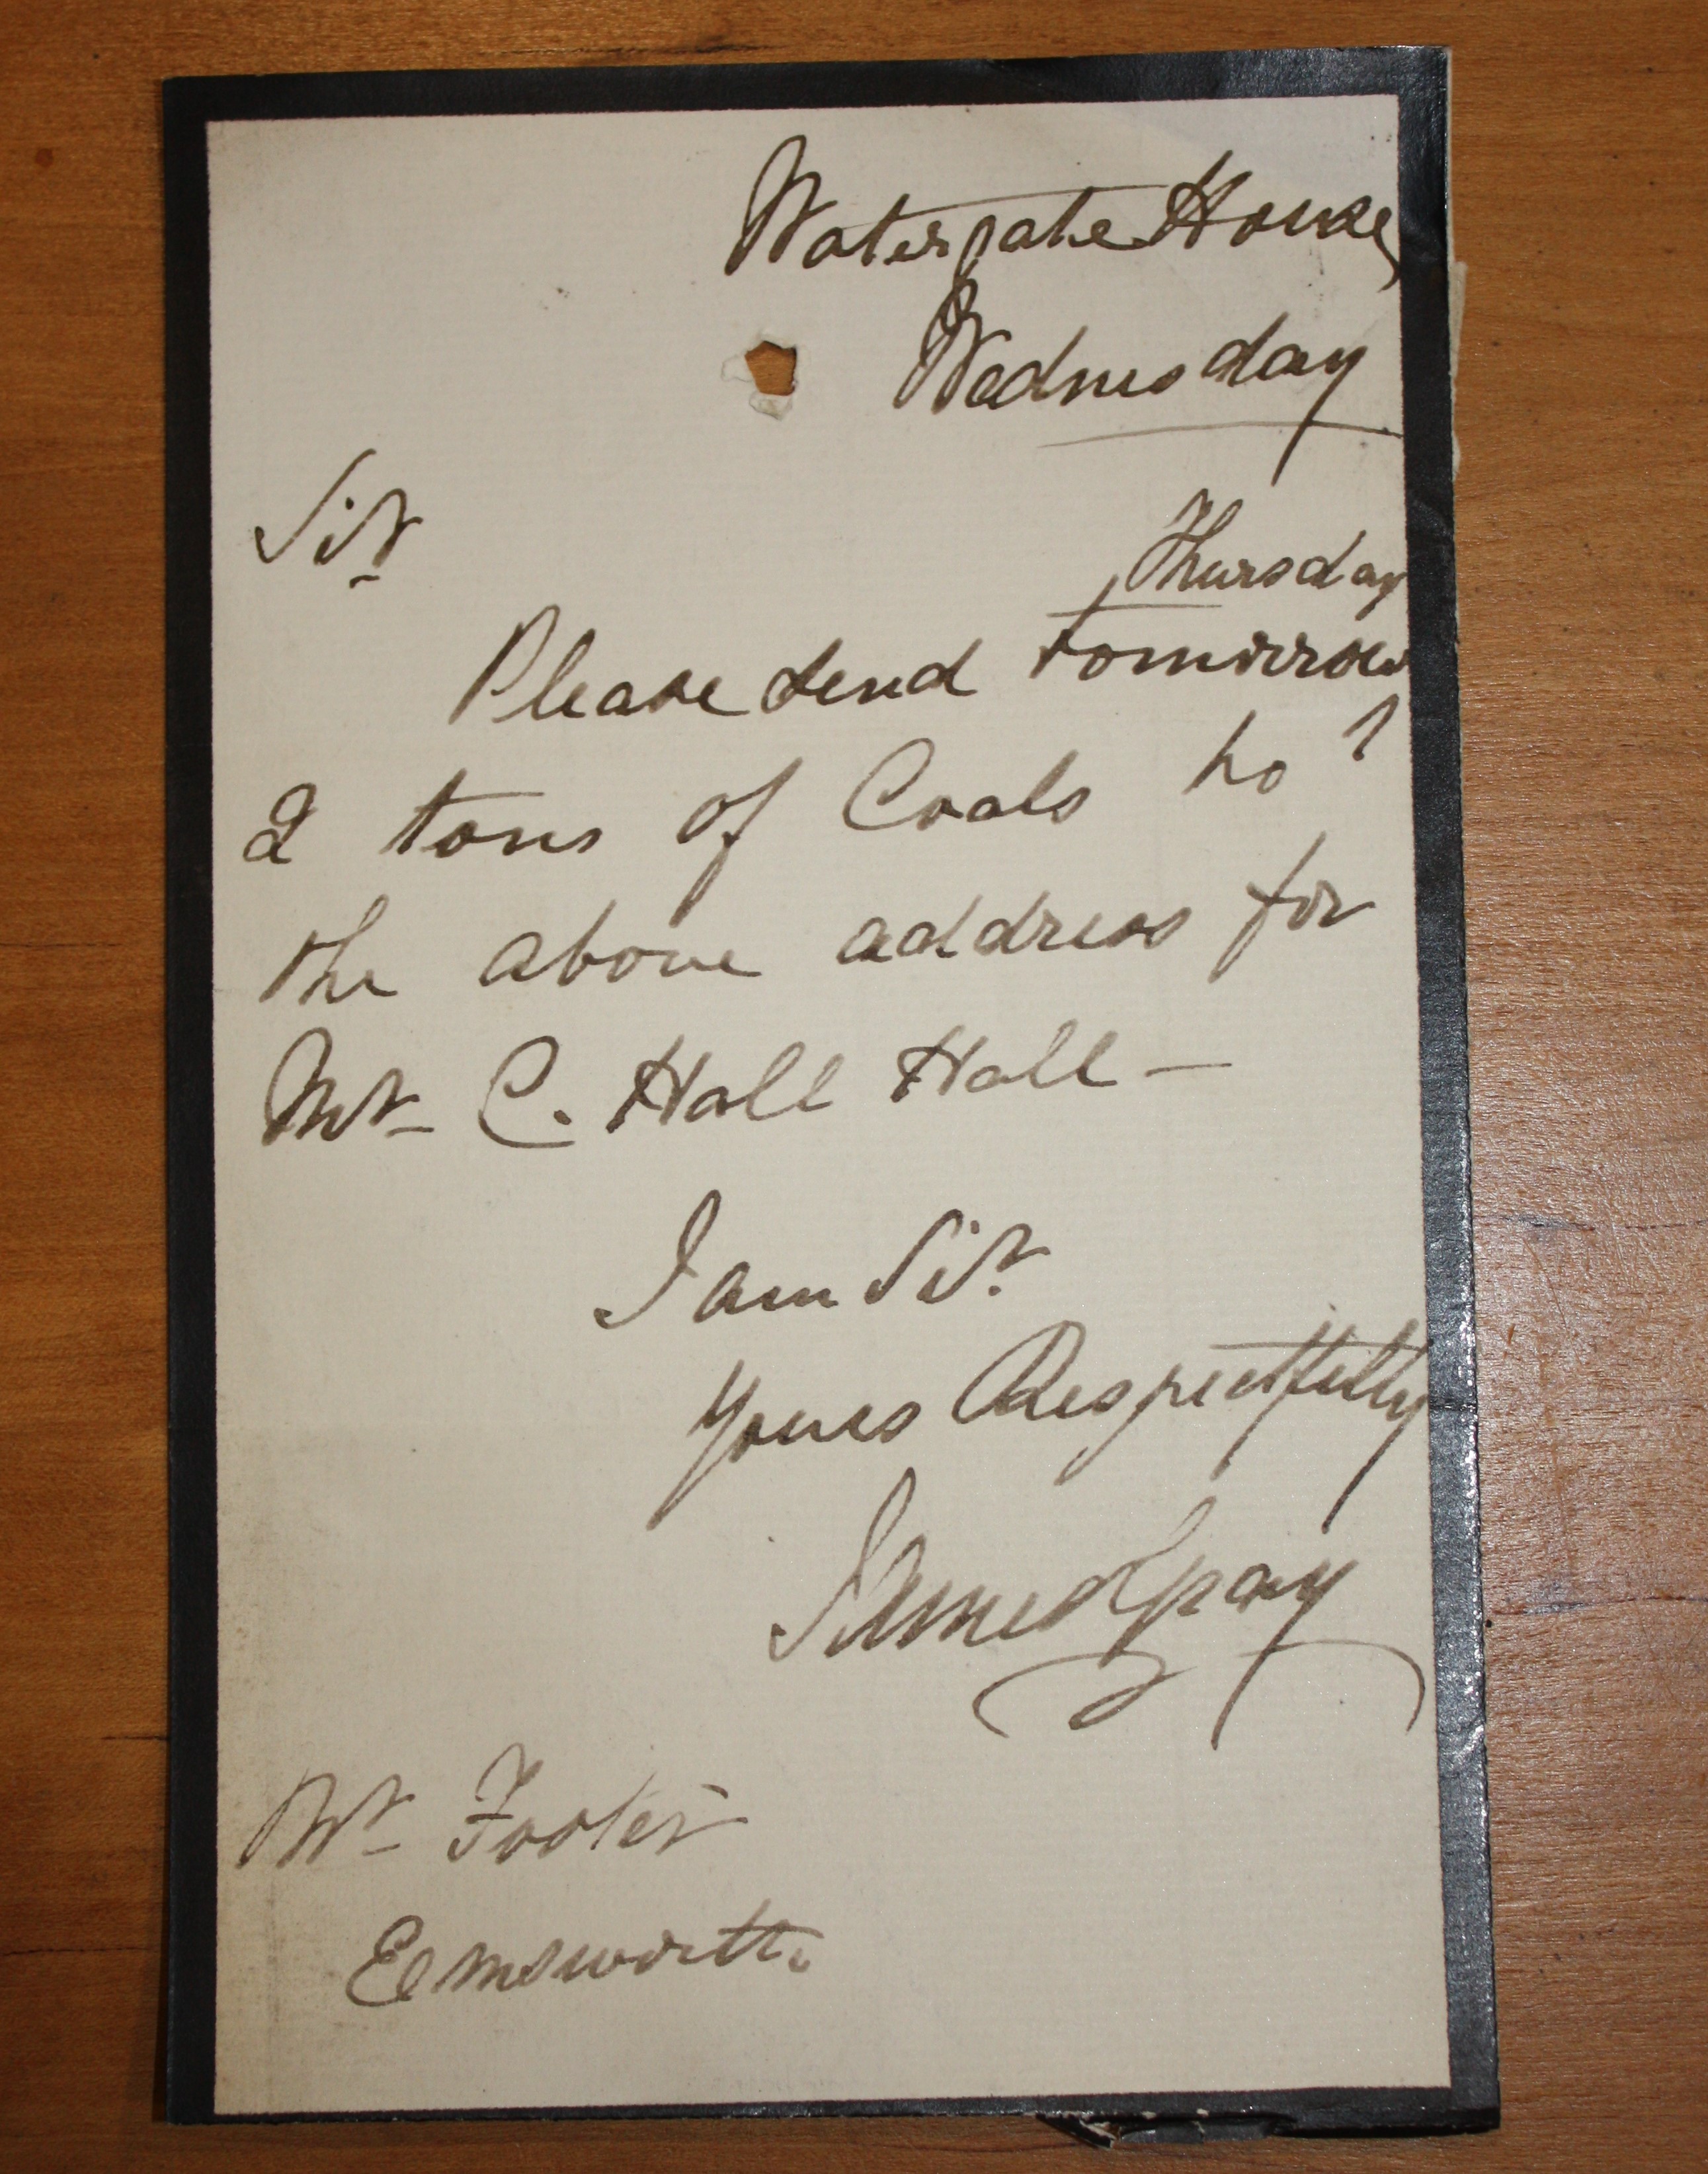 Watergate House,
Wednesday
Sir
Thursday
Please send tomorrow
2 tons of Coals to
the above address for
Mr C. Hall Hall —
I am Sir.
Yours Respectfully
James
Mr Footer
Emsworth.